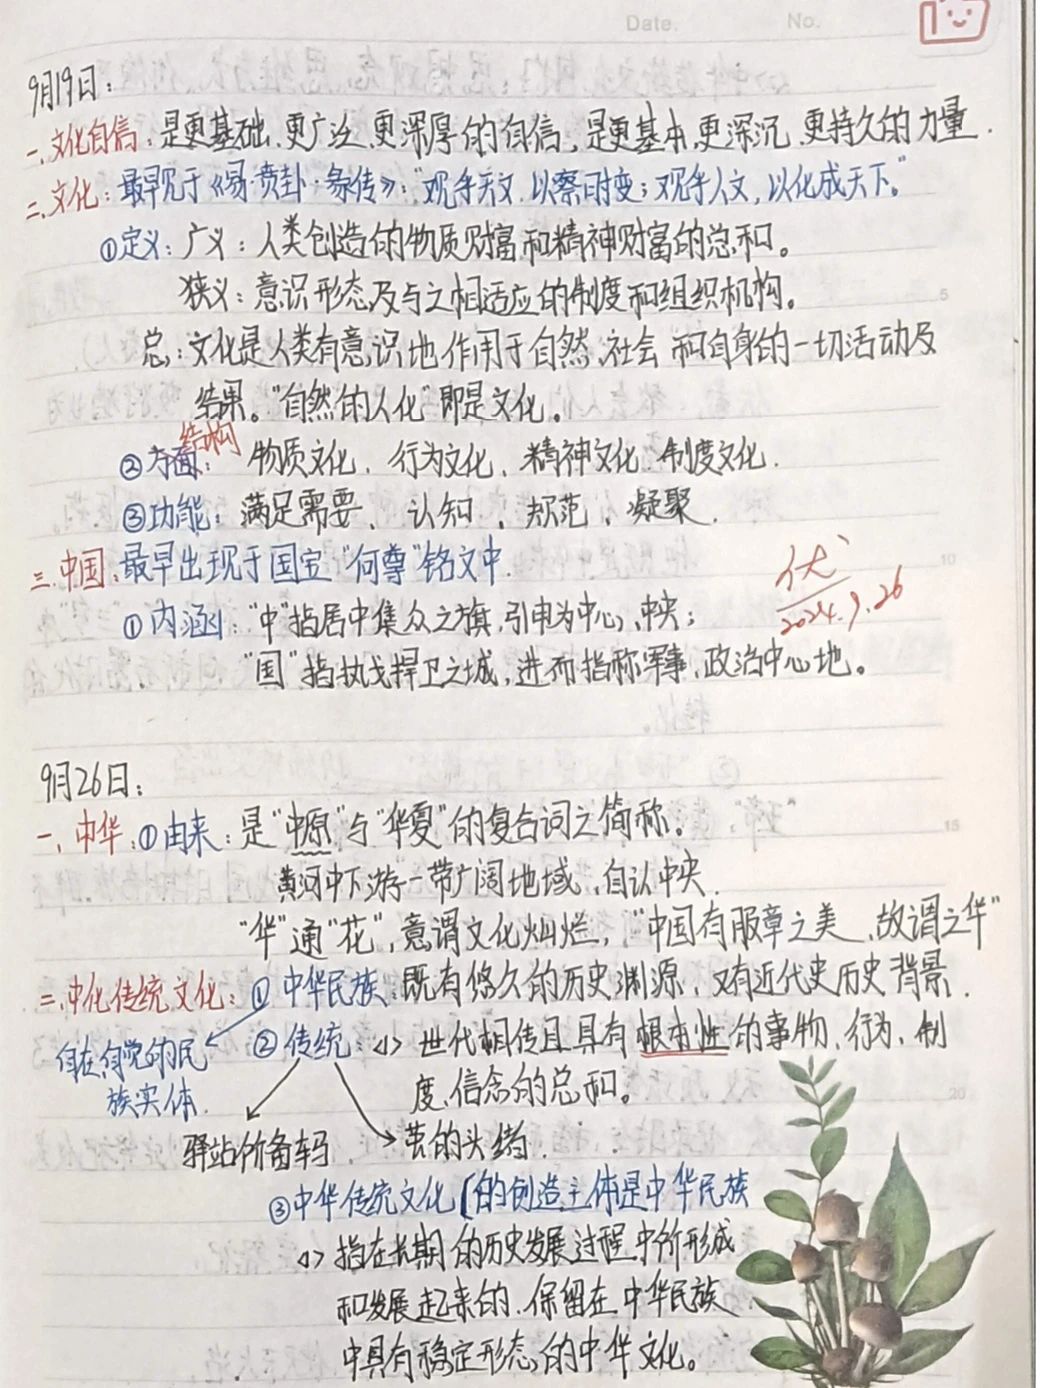 Date.    No.
9月19日:
一、文化自信：是更基础、更广泛、更深厚的自信，是更基本、更深沉、更持久的力量.
二、文化：最早见于《易·贲卦·彖传》："观乎天文，以察时变；观乎人文，以化成天下。"
①定义：广义：人类创造的物质财富和精神财富的总和。
狭义：意识形态及与之相适应的制度和组织机构。
总：文化是人类有意识地作用于自然、社会和自身的一切活动及
结果。"自然的人化"即是文化。
结构
②方面：物质文化、行为文化、精神文化、制度文化.
③功能：满足需要、认知、规范、凝聚.
三、中国：最早出现于国宝"何尊"铭文中.
2024.9.26
①内涵："中"指居中集众之旗，引申为中心、中央；
"国"指执戈捍卫之城，进而指称军事、政治中心地。
9月26日:
一、中华：①由来：是"中原"与"华夏"的复合词之简称。
黄河中下游一带广阔地域，自认中央.
"华"通"花"，意谓文化灿烂，"中国有服章之美，故谓之华"
二、中化传统文化：①中华民族：既有悠久的历史渊源，又有近代史历史背景.
自在自觉的民
族实体.
②传统：<1>世代相传且具有根本性的事物、行为、制
度、信念的总和。
驿站所备车马
茧的头绪.
③中华传统文化（的创造主体是中华民族
<1>指在长期的历史发展过程中所形成
和发展起来的、保留在中华民族
中具有稳定形态的中华文化。
5
10
15
20